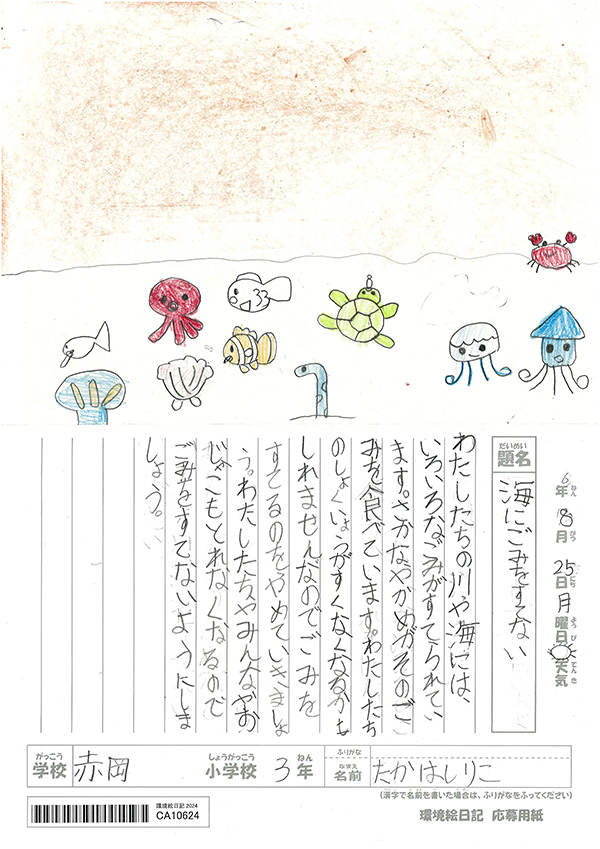 6年8月25日月曜日天気
ねん がつ にち ようび てんき
だいめい
題名
海にごみをすてない
わたしたちの川や海には、
いろいろなごみがすてられてい
ます。さかなやかめがそのご
みを食べています。わたしたち
のしょくりょうがすくなくなるかも
しれませんなのでごみを
すてるのをやめていきましょ
う。わたしたちやみんなやお
じゃこもとれなくなるので
ごみをすてないようにしま
しょう。
がっこう しょうがっこう ねん ふりがな
学校 赤岡 小学校 3年 なまえ 名前 たかはしりこ
(漢字で名前を書いた場合は、ふりがなをふってください)
環境絵日記 応募用紙
環境絵日記 2024
CA10624